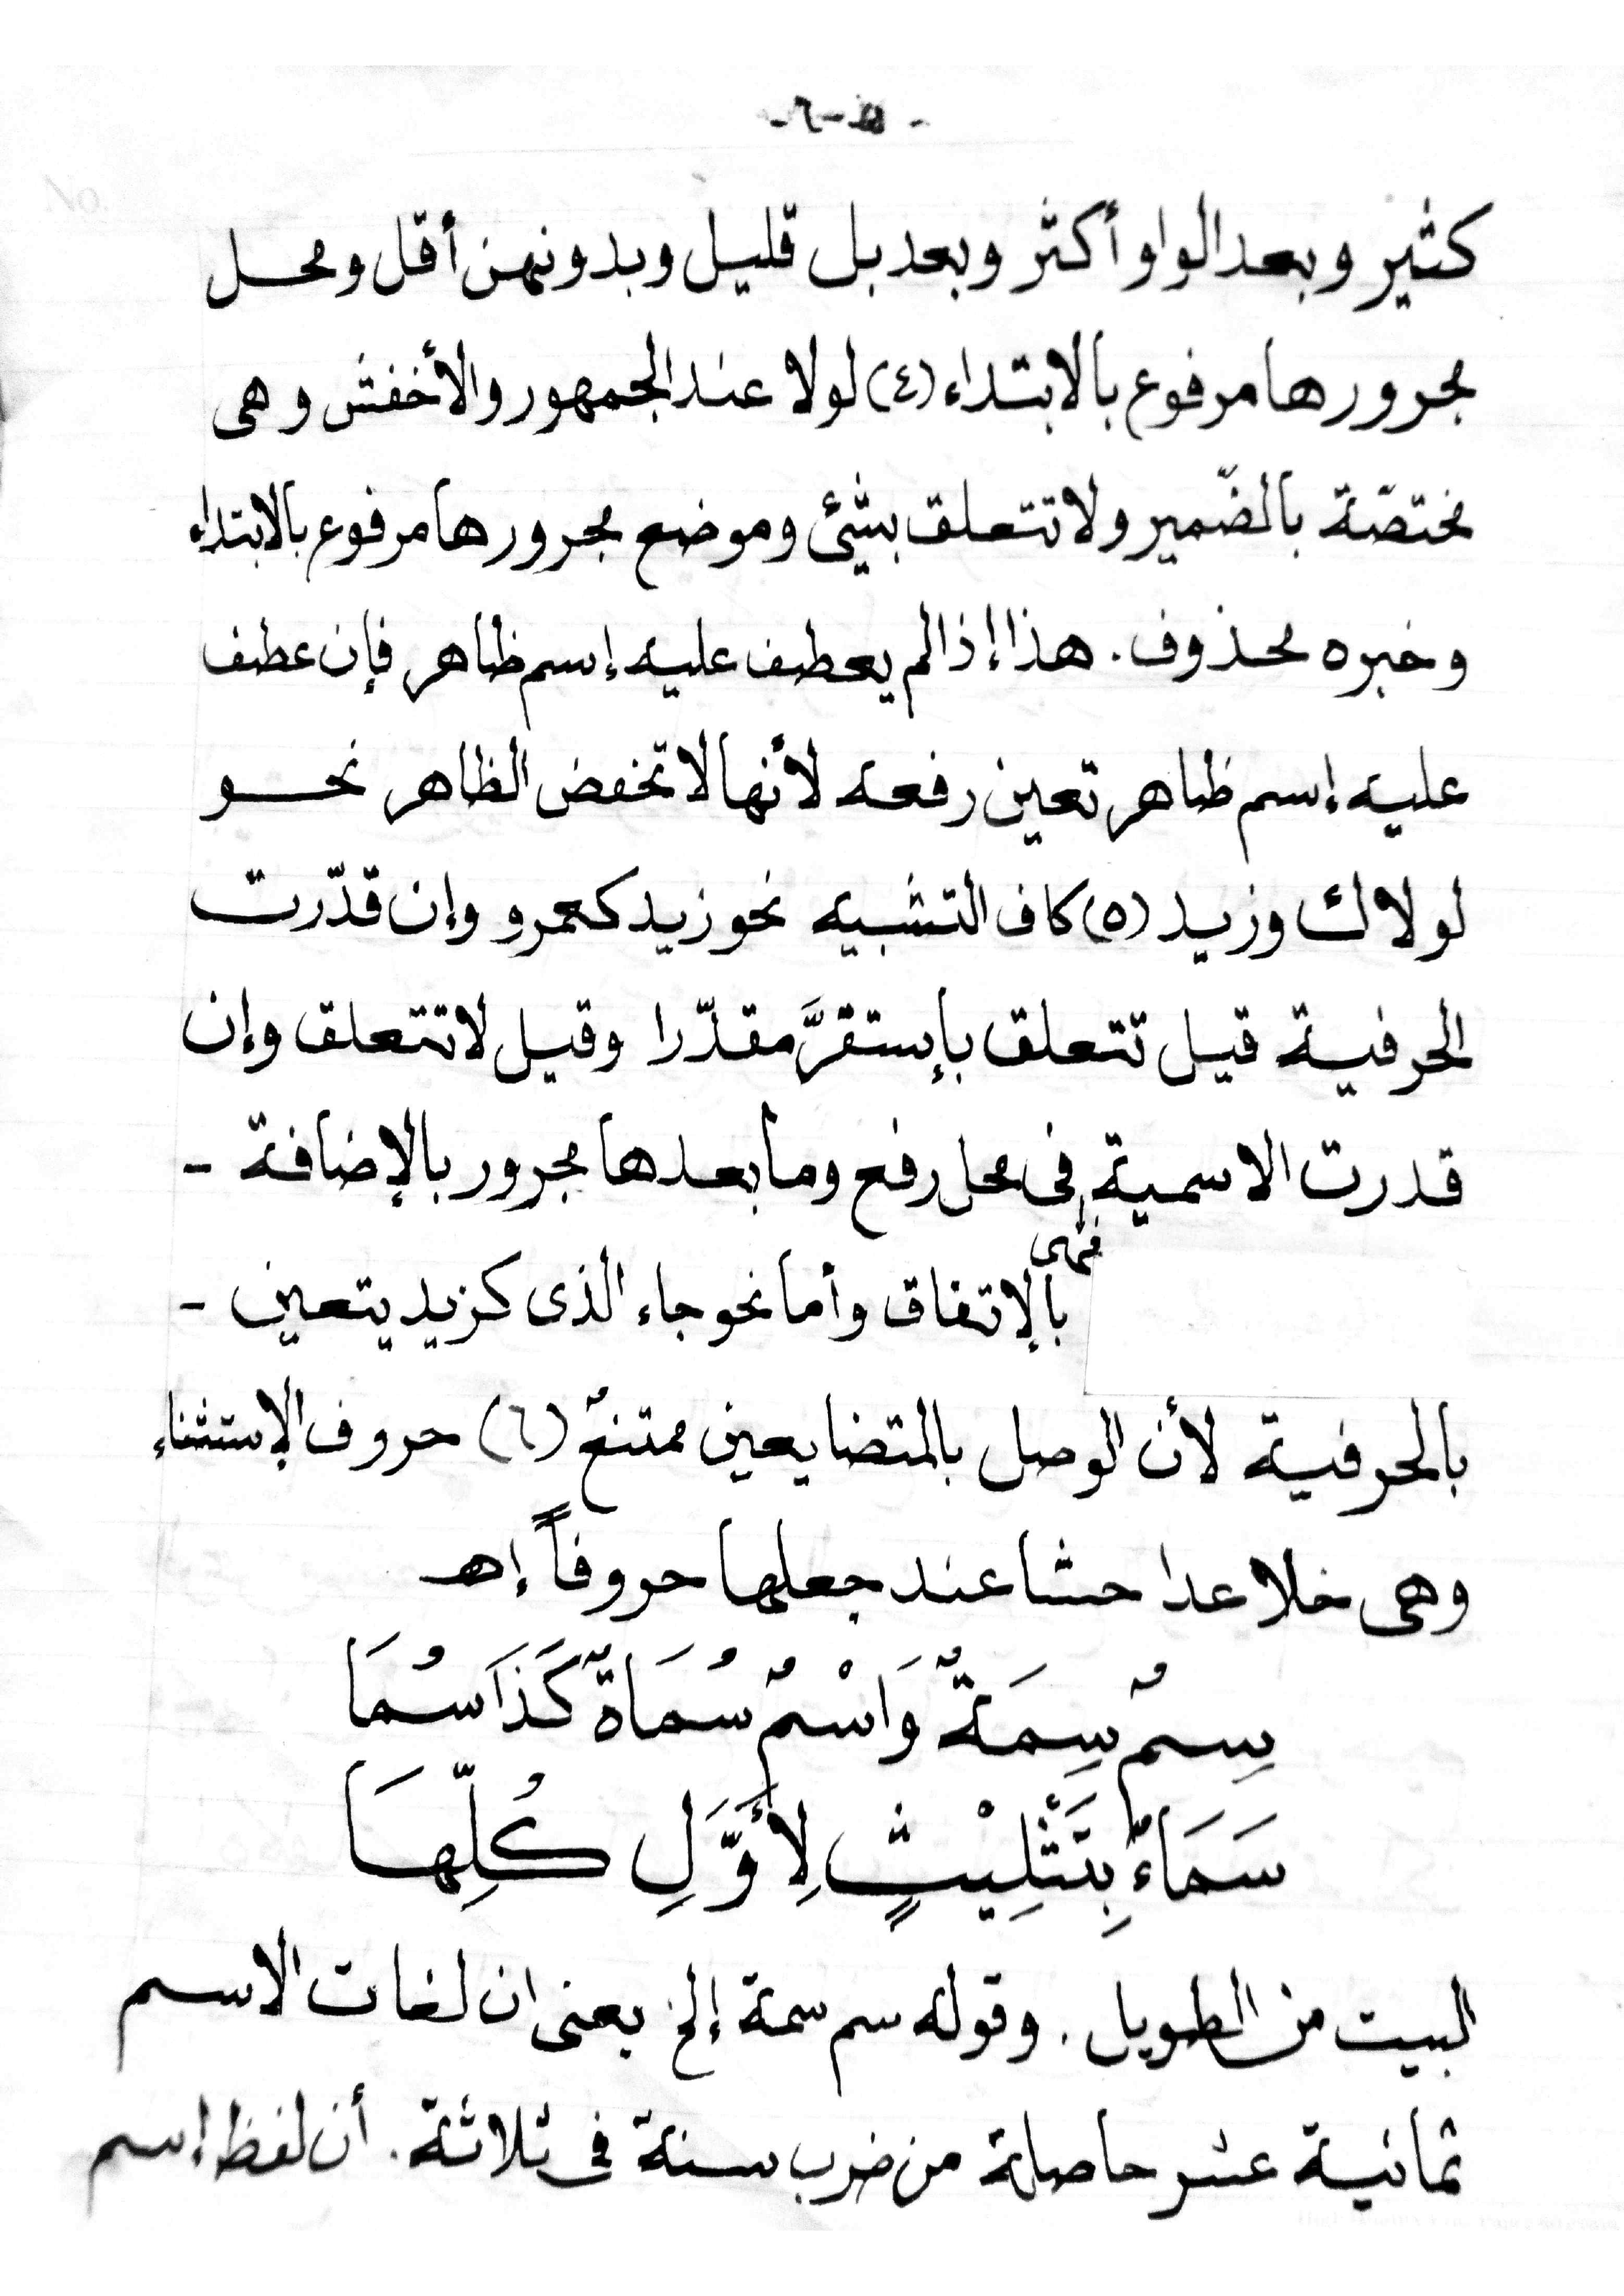 كثير وبعد الواو أكثر وبعد بل قليل وبدونهن أقل ومحل
مجرورها مرفوع بالابتداء (٤) لولا عند الجمهور والأخفش وهى
مختصّة بالضّمير ولا تتعلق بشئ وموضع مجرورها مرفوع بالابتداء
وخبره محذوف. هذا إذا لم يعطف عليه إسم ظاهر فإن عطف
عليه إسم ظاهر تعين رفعه لأنها لا تخفض الظاهر نحو
لولاك وزيد (٥) كاف التشبيه نحو زيد كعمرو وإن قدّرت
الحرفية قيل تتعلق بإستقرَّ مقدّرا وقيل لا تتعلق وإن
قدرت الاسمية فهى فى محل رفع وما بعدها مجرور بالإضافة -
بالإتفاق وأما نحو جاء الذى كزيد يتعين -
بالحرفية لأن الوصل بالمتضايعين ممتنعٌ (٦) حروف الإستثناء
وهى خلا عدا حشا عند جعلها حروفاً إهـ
سِمٌ سِمَةٌ وَاسْمٌ سُمَاةٌ كَذَا سُمَا
سَمَاءٌ بِتَثْلِيْثٍ لِأَوَّلِ كُلِّهَا
البيت من الطويل. وقوله سم سمة إلخ يعنى ان لغات الاسم
ثمانية عشر حاصلة من ضرب ستة فى ثلاثة. أن لفظ إسم